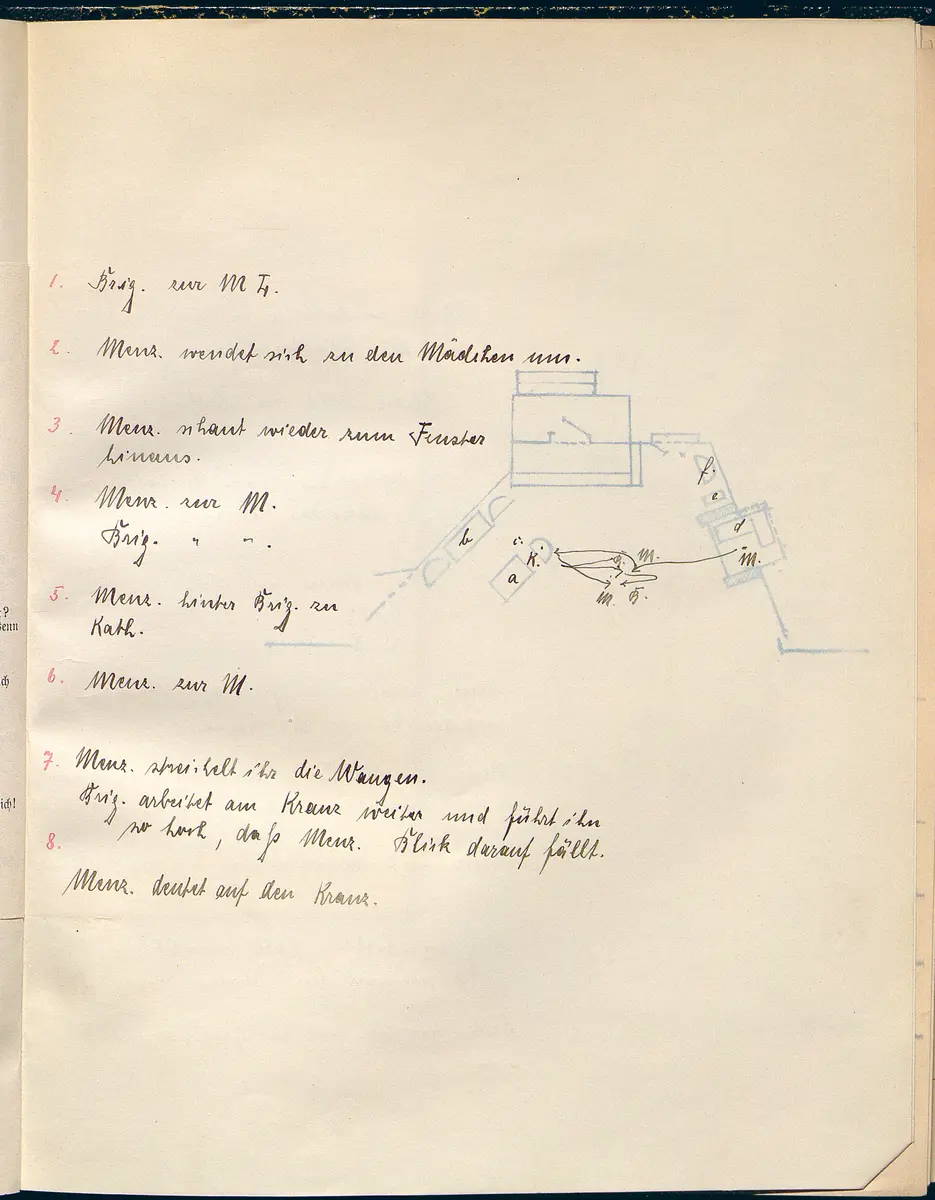 ?
Senn
ch
ich!
1. Brig. zur M
2. Menz. wendet sich zu den Mädchen um.
3. Menz. schaut wieder zum Fenster
hinaus.
4. Menz. zur M.
Brig. " " .
5. Menz. hinter Brig. zu
Kath.
6. Menz. zur M.
7. Menz. streichelt ihr die Wangen.
Brig. arbeitet am Kranz weiter und führt ihn
8. so hoch, daß Menz. Blick darauf fällt.
Menz. deutet auf den Kranz.
f.
e
d
b
c.
K.
a
M.
M.
M. B.